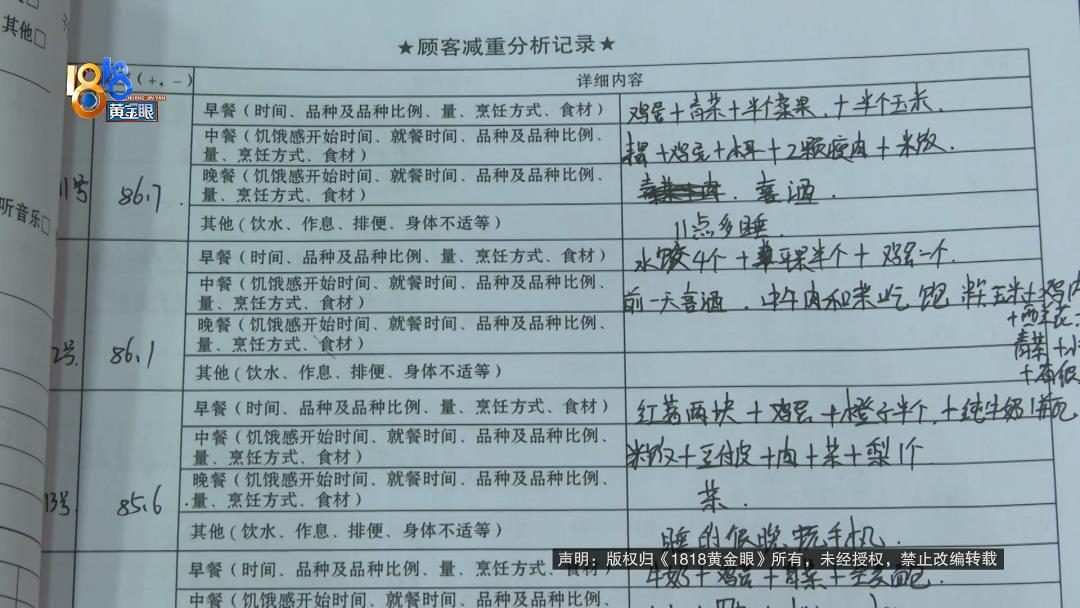 其他□
听音乐□
★顾客减重分析记录★
1818
HUANG JIN YAN
黄金眼
(+, -)
详细内容
早餐（时间、品种及品种比例、量、烹饪方式、食材）
鸡蛋+青菜+半个苹果,+半个玉米.
中餐（饥饿感开始时间、就餐时间、品种及品种比例、
量、烹饪方式、食材）
+鸡蛋+木耳+2颗瘦肉+米饭.
11号
86.7
晚餐（饥饿感开始时间、就餐时间、品种及品种比例、
量、烹饪方式、食材）
喜酒.
其他（饮水、作息、排便、身体不适等）
11点多睡.
早餐（时间、品种及品种比例、量、烹饪方式、食材）
水饺4个+苹果半个+鸡蛋一个.
中餐（饥饿感开始时间、就餐时间、品种及品种比例、
量、烹饪方式、食材）
前一天喜酒.中午肉和菜吃饱 半玉米+鸡肉
+西兰花+
2号
86.1
晚餐（饥饿感开始时间、就餐时间、品种及品种比例、
量、烹饪方式、食材）
青菜+
其他（饮水、作息、排便、身体不适等）
早餐（时间、品种及品种比例、量、烹饪方式、食材）
红薯两块+鸡蛋+橙子半个,+纯牛奶1瓶
中餐（饥饿感开始时间、就餐时间、品种及品种比例、
量、烹饪方式、食材）
米饭+豆付皮+肉+菜+梨1个
13号
85.6
晚餐（饥饿感开始时间、就餐时间、品种及品种比例、
量、烹饪方式、食材）
菜
其他（饮水、作息、排便、身体不适等）
睡的很晚玩手机.
声明：版权归《1818黄金眼》所有，未经授权，禁止改编转载
早餐（时间、品种及品种比例、量、烹饪方式、食材）
牛奶+鸡蛋+青菜+全麦面包.
中餐（饥饿感开始时间、就餐时间、品种及品种比例、